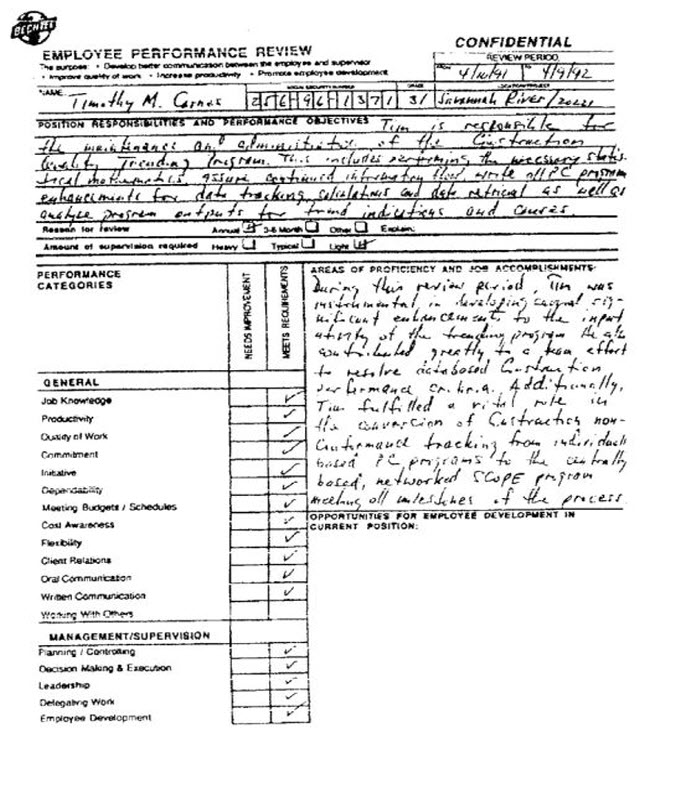 BECHTEL
EMPLOYEE PERFORMANCE REVIEW
CONFIDENTIAL
The purpose: • Develop better communication between the employee and supervisor
• Improve quality of work • Increase productivity • Promote employee development
REVIEW PERIOD
FROM 4/10/91 TO 4/9/92
NAME: SOCIAL SECURITY NUMBER GRADE
Timothy M. Carnes [SSN omitted] 31 Savannah River/20221
POSITION RESPONSIBILITIES AND PERFORMANCE OBJECTIVES Tim is responsible for
the maintenance and administration of the Construction
Quality Trending Program. This includes performing the necessary statis-
tical mathematics, assure continued information flow, write all PC program
enhancements for data tracking, calculations and data retrieval as well as
analyze program outputs for trend indications and causes.
Reason for review Annual 3-6 Month Other Explain:
Amount of supervision required Heavy Typical Light
PERFORMANCE
CATEGORIES
NEEDS IMPROVEMENT
MEETS REQUIREMENTS
GENERAL
Job Knowledge
Productivity
Quality of Work
Commitment
Initiative
Dependability
Meeting Budgets / Schedules
Cost Awareness
Flexibility
Client Relations
Oral Communication
Written Communication
Working With Others
MANAGEMENT/SUPERVISION
Planning / Controlling
Decision Making & Execution
Leadership
Delegating Work
Employee Development
AREAS OF PROFICIENCY AND JOB ACCOMPLISHMENTS:
During this review period, Tim was
instrumental in developing several sig-
nificant enhancements to the input
utility of the trending program. He also
contributed greatly to a team effort
to resolve databased Construction
performance criteria. Additionally,
Tim fulfilled a vital role in
the conversion of Construction non-
Conformance tracking from individuals
based PC programs to the centrally
based, networked SCOPE program
meeting all milestones of the process.
OPPORTUNITIES FOR EMPLOYEE DEVELOPMENT IN
CURRENT POSITION: